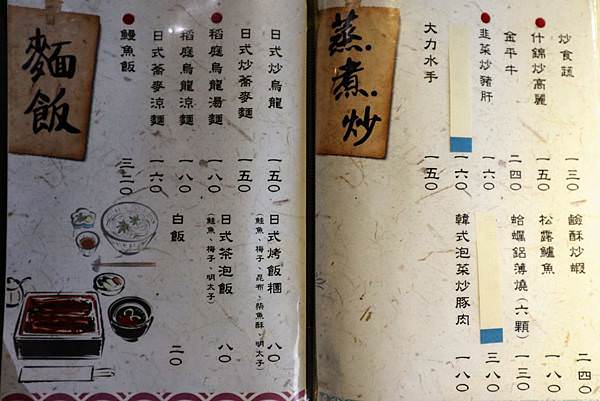 炒食蔬 一三〇
什錦炒高麗 一五〇
金平牛 二四〇
韭菜炒豬肝 一六〇
一六〇
大力水手 一五〇
蒸.煮.炒
鹹酥炒蝦 二四〇
松露鱸魚 一八〇
蛤蠣鋁薄燒(六顆) 一三〇
三八〇
韓式泡菜炒豚肉 一八〇
日式炒烏龍 一五〇
日式炒蕎麥麵 一五〇
稻庭烏龍湯麵 一八〇
稻庭烏龍涼麵 一八〇
日式蕎麥涼麵 一六〇
鰻魚飯 三二〇
麵飯
日式烤飯糰 八〇
(鮭魚、梅子、昆布、柴魚酥、明太子)
日式茶泡飯 八〇
(鮭魚、梅子、明太子)
白飯 二〇